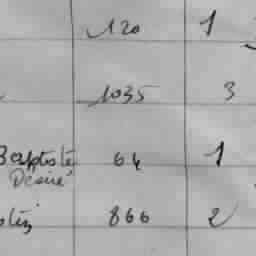 120 1
1035 3
Baptiste 64 1
Désiré
866 2